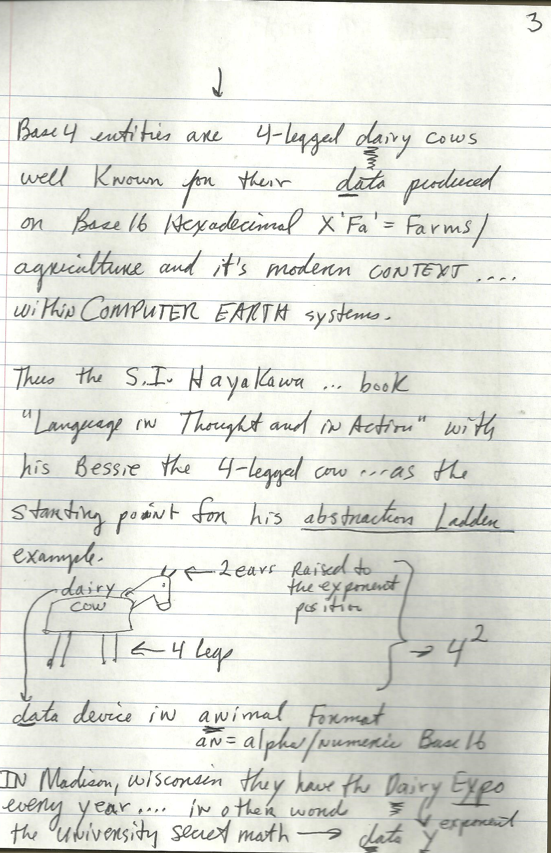 3
Base 4 entities are 4-legged dairy cows
well known for their data produced
on Base 16 Hexadecimal X'Fa' = Farms/
agriculture and it's modern CONTEXT ....
within COMPUTER EARTH systems.
Thus the S.I. Hayakawa ... book
"Language in Thought and in Action" with
his Bessie the 4-legged cow ... as the
starting point for his abstraction Ladder
example.
dairy cow
← 2 ears Raised to the exponent position
← 4 legs
→ 4²
data device in animal Format
an = alpha/numeric Base 16
IN Madison, Wisconsin they have the Dairy Expo
every year .... in other word
the University secret math → data exponent